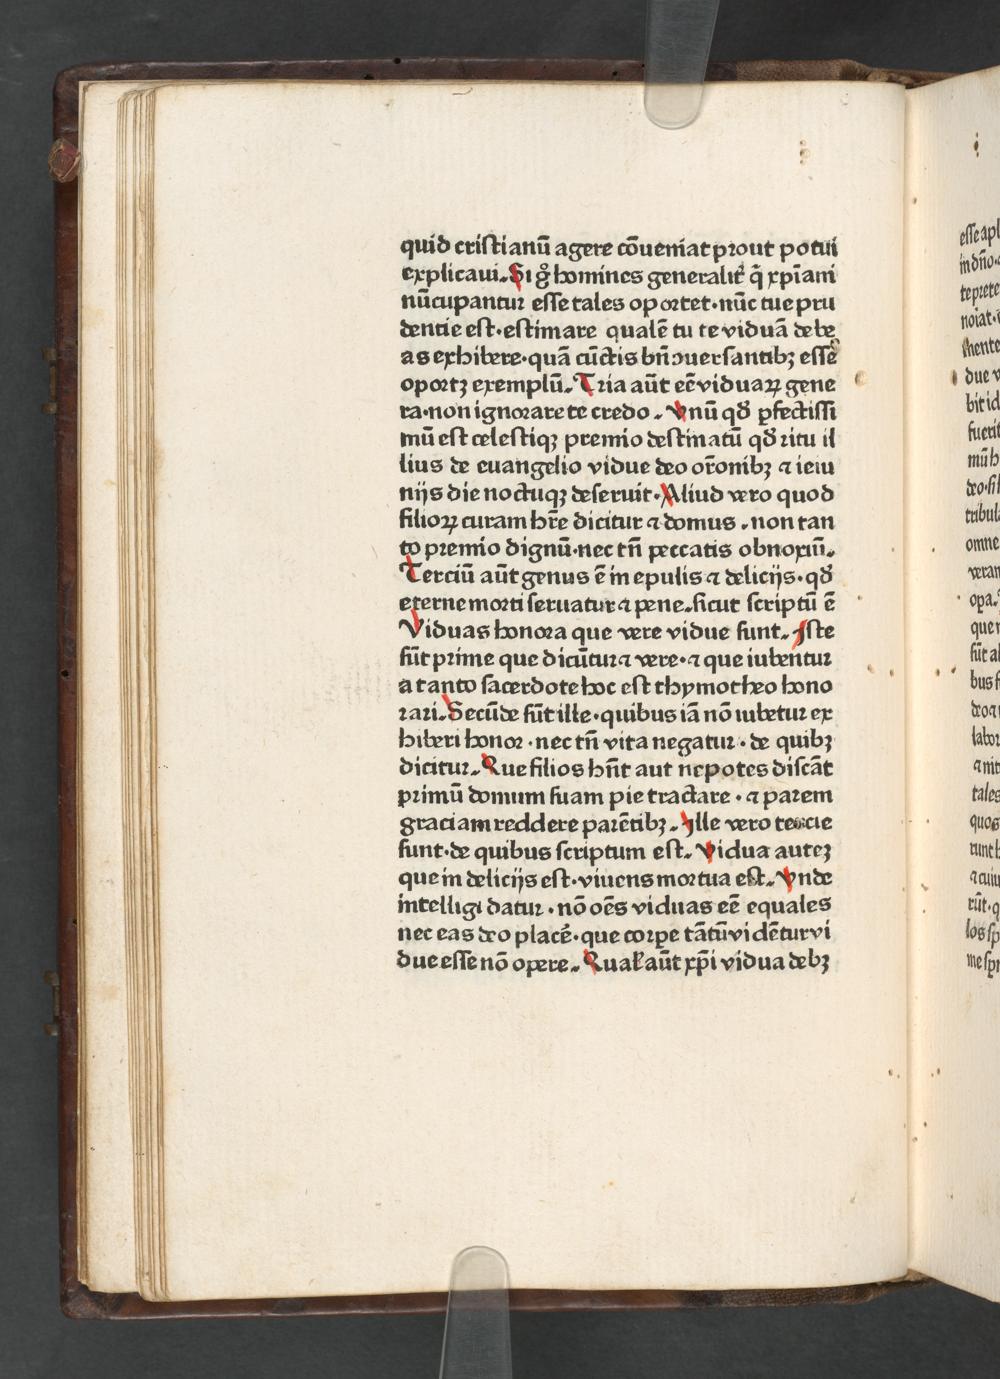 quid cristianū agere cōueniat prout potui
explicaui. Si gͦ homines generalit̄ q̄ xp̄iani
nūcupantur esse tales oportet·nūc tue pru
dentie est·estimare qualē tu te viduā debe
as exhibere·quā cūctis bn̄ ɔuersantibꝫ esse
oportꝫ exemplū. Tria aūt eē viduaꝝ gene
ra·non ignorare te credo. Vnū qđ ꝑfectissi
mū est celestiqꝫ premio destinatū qđ ritu il
lius de euangelio vidue deo or̄onibꝫ ⁊ ieiu
nijs die noctuqꝫ deseruit·Aliud vero quod
filioꝝ curam hr̄e dicitur ⁊ domus. non tan
to premio dignū·nec tn̄ peccatis obnoxiū.
Terciū aūt genus ē in epulis ⁊ delicijs·qđ
eterne morti seruatur ⁊ pene. sicut scriptū ē
Viduas honora que vere vidue sunt. Iste
sūt prime que dicūtur ⁊ vere·⁊ que iubentur
a tanto sacerdote hoc est thymotheo hono
rari. Secūde sūt ille·quibus iā nō iubetur ex
hiberi honor·nec tn̄ vita negatur·de quibꝫ
dicitur. Que filios hn̄t aut nepotes discāt
primū domum suam pie tractare·⁊ parem
graciam reddere parētibꝫ. Ille vero tercie
sunt·de quibus scriptum est. Vidua auteꝫ
que in delicijs est·viuens mortua est. Vnde
intelligi datur·nō oēs viduas eē equales
nec eas deo placē·que corpe tātū vidētur vi
due esse nō opere. Qual̄ aūt xp̄i vidua debꝫ
esse apl
in dn̄o
te prete
noiat
mente
due v
bit id
fuerit
mū h
deo·fil
tribula
omne
veran
opa.
que n
sūt al
bus f
deo ⁊
labor
⁊ nit
tales
quos
runt h
⁊ cuiu
rūt·q
los sp
me spi